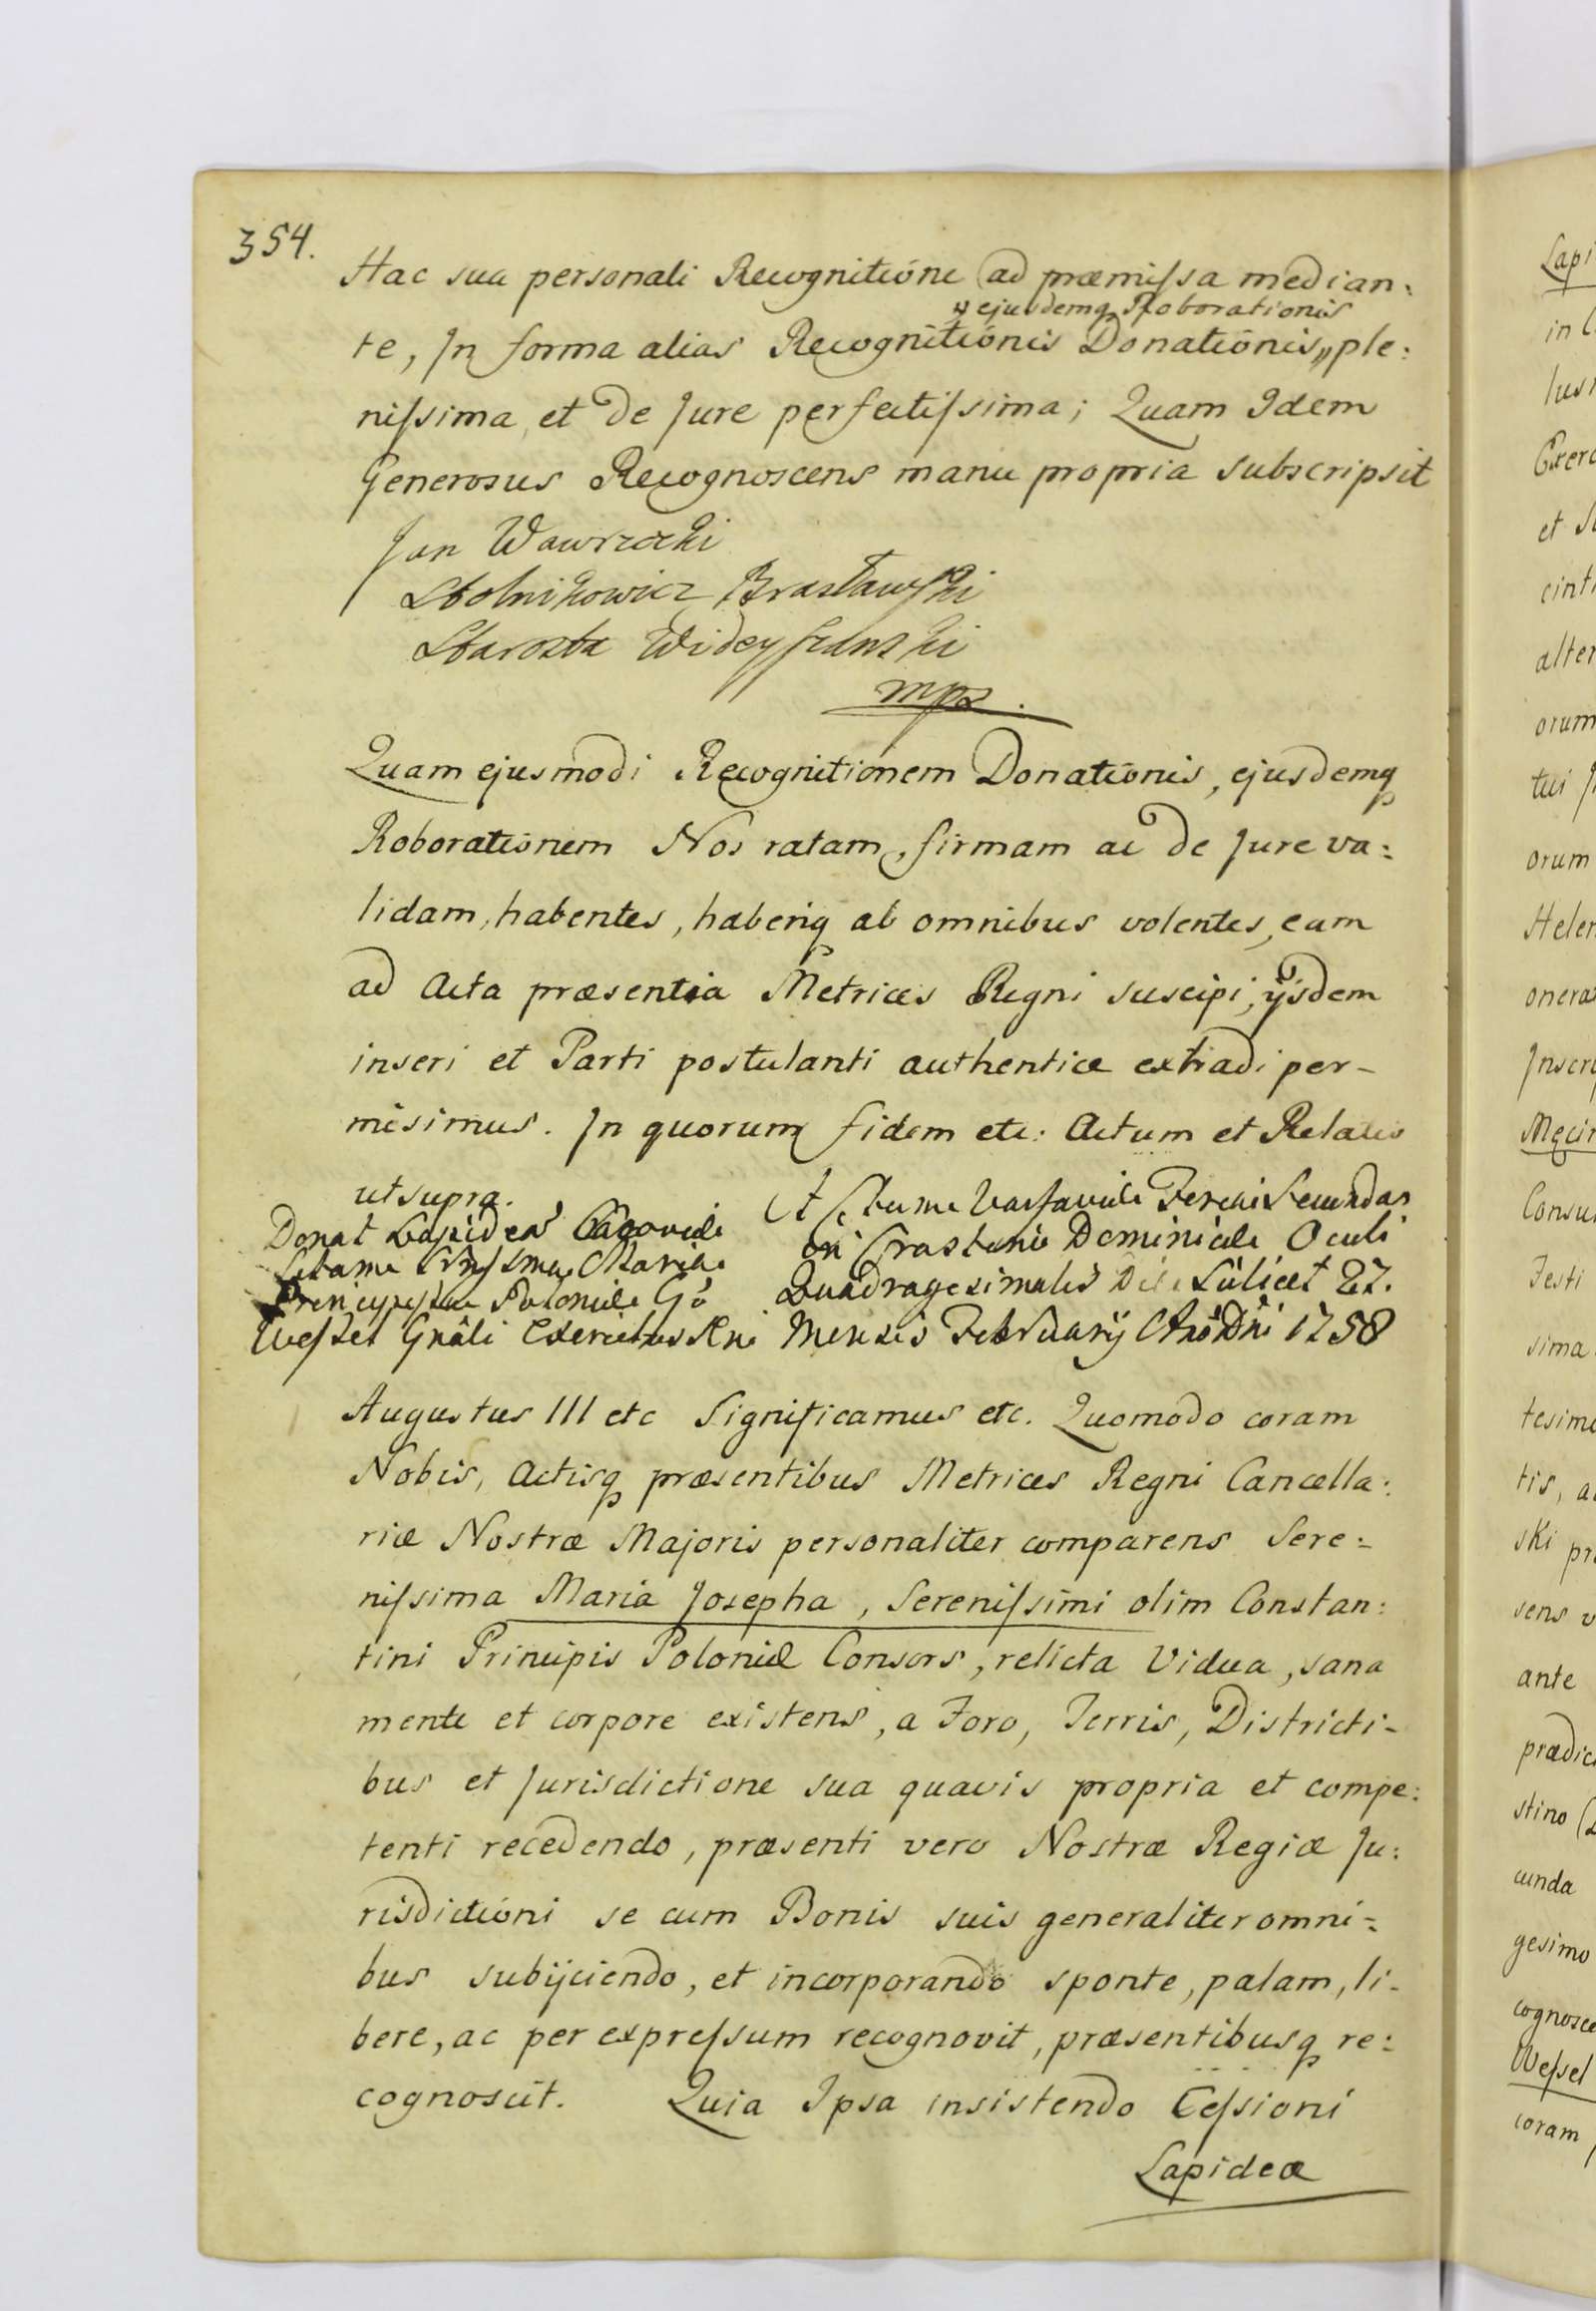 354.
Hac sua personali Recognitione ad præmissa median:
ejusdemq Roborationis
te, In forma alias Recognitionis Donationis,, ple:
nissima et de Jure perfectissima; Quam Idem
Generosus Recognoscens manu propria subscripsit
Jan Wawrzecki
Stolnikowicz Brasławski
Starosta
mpa.
Quam ejusmodi Recognitionem Donationis, ejusdemq
Roborationem Nos ratam, firmam ac de Jure va:
lidam, habentes, haberiq ab omnibus volentes, eam
ad Acta præsentia Metrices Regni suscipi, ijsdem
inseri et Parti postulanti authentice extradi per-
misimus. In quorum fidem etc: Actum et Relatio
ut supra.
Actum Varsaviæ Feria Secunda
in Crastino Dominicæ Oculi
Quadragesimalis Die Scilicet 27.
Mensis February Año Dñi 1758
Donat Lapideã
Mariæ
Poloniæ Gó
Wessel Gnâli Exercitus
Augustus III etc Significamus etc. Quomodo coram
Nobis, Actisq præsentibus Metrices Regni Cancella:
riæ Nostræ Majoris personaliter comparens Sere:
nissima Maria Josepha, Serenissimi olim Constan:
tini Principis Poloniæ Consors, relicta Vidua, sana
mente et corpore existens, a Foro, Terris, Districti-
bus et Jurisdictione sua quavis propria et compe:
tenti recedendo, præsenti vero Nostræ Regiæ Ju:
risdictioni se cum Bonis suis generaliter omni:
bus subijciendo, et incorporando sponte, palam, li-
bere, ac per expressum recognovit, præsentibusq re:
cognoscit. Quia Ipsa insistendo Cessioni
Lapideæ
Lapi
in
lus
Exerc
et
cint
alter
orum
tui
orum
Helen
oneras
Inscri
Męcin
Consu
Festi
sima
tesimo
tis, a
ski pr
sens v
ante
prædic
stino
cunda
gesimo
cognosce
Wessel
coram